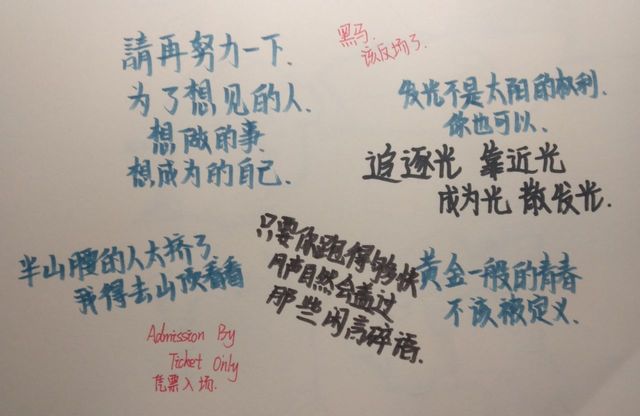 請再努力一下.
为了想见的人.
想做的事
想成为的自己.
黑马.
该反场了.
发光不是太阳的权利.
你也可以.
追逐光 靠近光
成为光 散发光.
半山腰的人太挤了
我得去山顶看看
只要你跑得够快
风声自然会盖过
那些闲言碎语.
黄金一般的青春
不该被定义.
Admission By
Ticket Only
凭票入场.